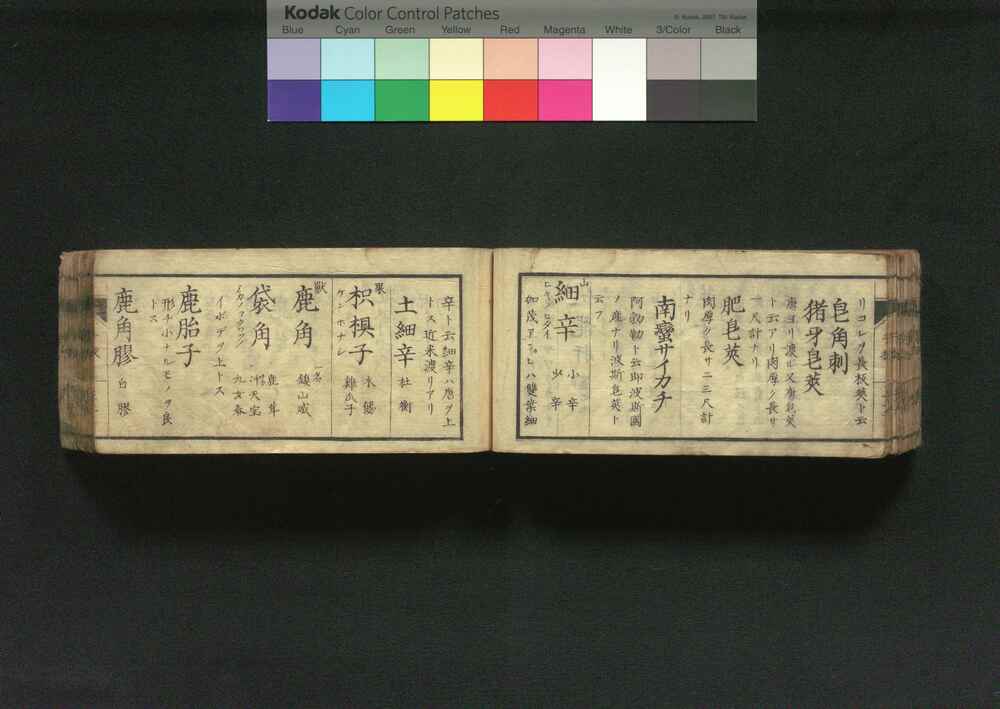 Kodak Color Control Patches
Blue Cyan Green Yellow Red Magenta White 3/Color Black
リコレヲ長板莢ト云
皂角刺
猪牙皂莢
ト云アリ肉厚ク長サ
一尺計ナリ
肥皂莢
肉厚ク長サ二三尺計
ナリ
南蠻サイカチ
阿勃勒ト云即波斯國
ノ産ナリ波斯皂莢ト
云フ
山
細辛
小辛
少辛
辛ト云細辛ハ唐ヲ上
トス近来渡リアリ
土細辛
杜衡
果
枳椇子
ケンホナシ
木蜜
雞瓜子
獸
鹿角
一名
鎮山威
イボヅヲ上トス
袋角
鹿茸
冲天宝
九女春
鹿胎子
形ホボナルモノヲ良
トス
鹿角膠
白膠